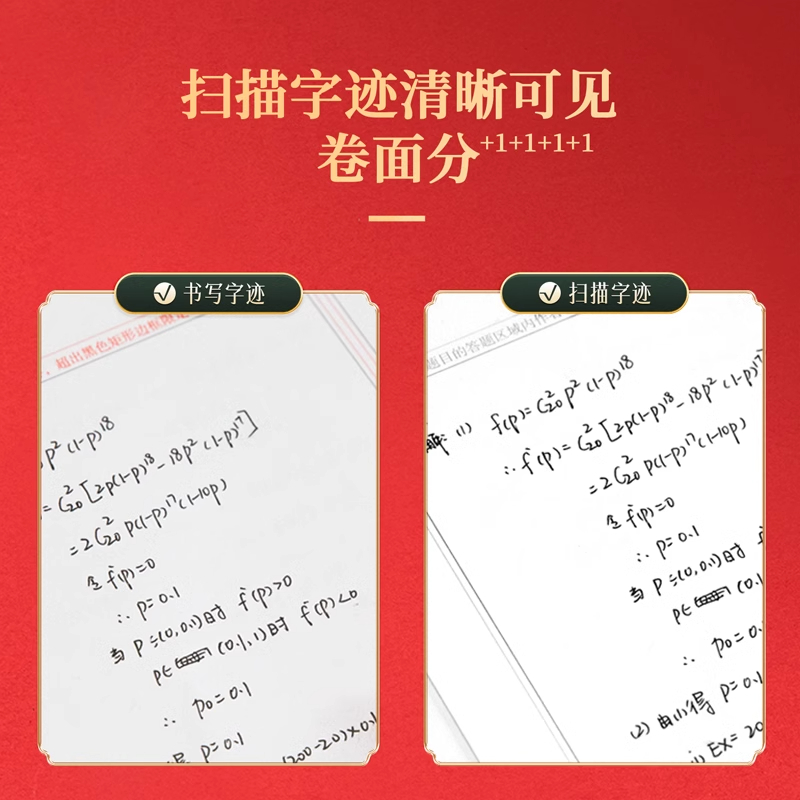 扫描字迹清晰可见
卷面分+1+1+1+1
书写字迹
超出黑色矩形边框限定
p² (1-p)18
= C²20 [2p(1-p)18 - 18p² (1-p)17]
= 2C²20 p(1-p)17(1-10p)
令f'(p)=0
∴ p=0.1
当 P ∈(0,0.1)时 f'(p)>0
p∈ (0.1,1)时 f'(p)<0
∴ p0=0.1
得 p=0.1
(200-20)×0.1
扫描字迹
题目的答题区域内作答
解: (1) f(p)=C²20 p² (1-p)18
∴ f'(p)= C²20 [2p(1-p)18 - 18p² (1-p)17
= 2C²20 p(1-p)17(1-10p)
令f'(p)=0
∴ p=0.1
当 P ∈(0,0.1)时
p∈ (0.1
∴ p0=0.
(2) 由(1)得 p=0.1
(i) EX= 20